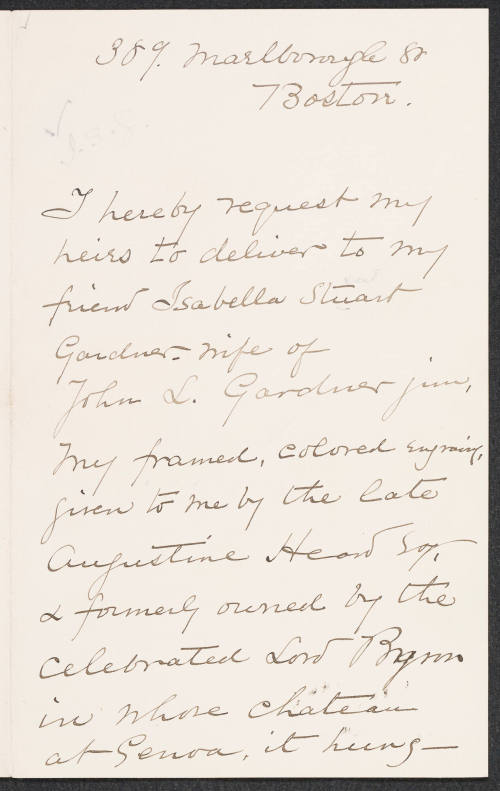 389. Marlborough St
Boston.
I hereby request my
heirs to deliver to my
friend Isabella Stuart
Gardner - wife of
John L. Gardner jun,
My framed, colored engraving,
given to me by the late
Augustine Heard Esq,
& formerly owned by the
celebrated Lord Byron
in whose chateau
at Genoa, it hung—